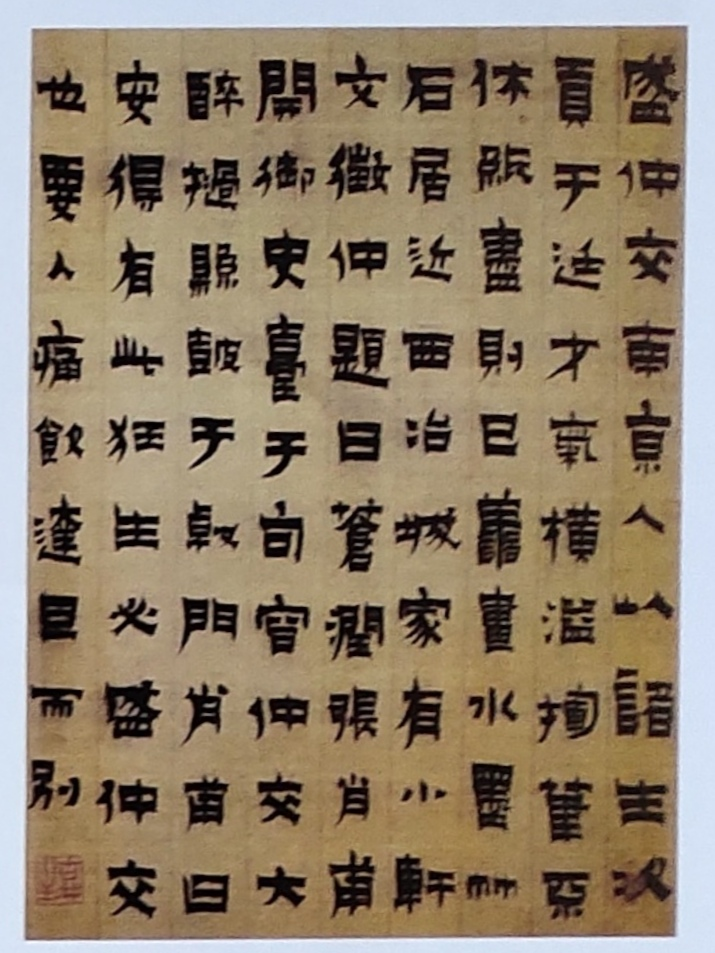 盛仲交東京人以諸生次
貢于廷才氣橫溢筆
休紙盡則已善畫水墨竹
石居近西冶城家有小軒
文徵仲題曰蒼潤張肖甫
開御史臺于句容仲交大
醉撾縣鼓于戟門肖甫曰
安得有此狂生必盛仲交
也要入痛飲達旦而別